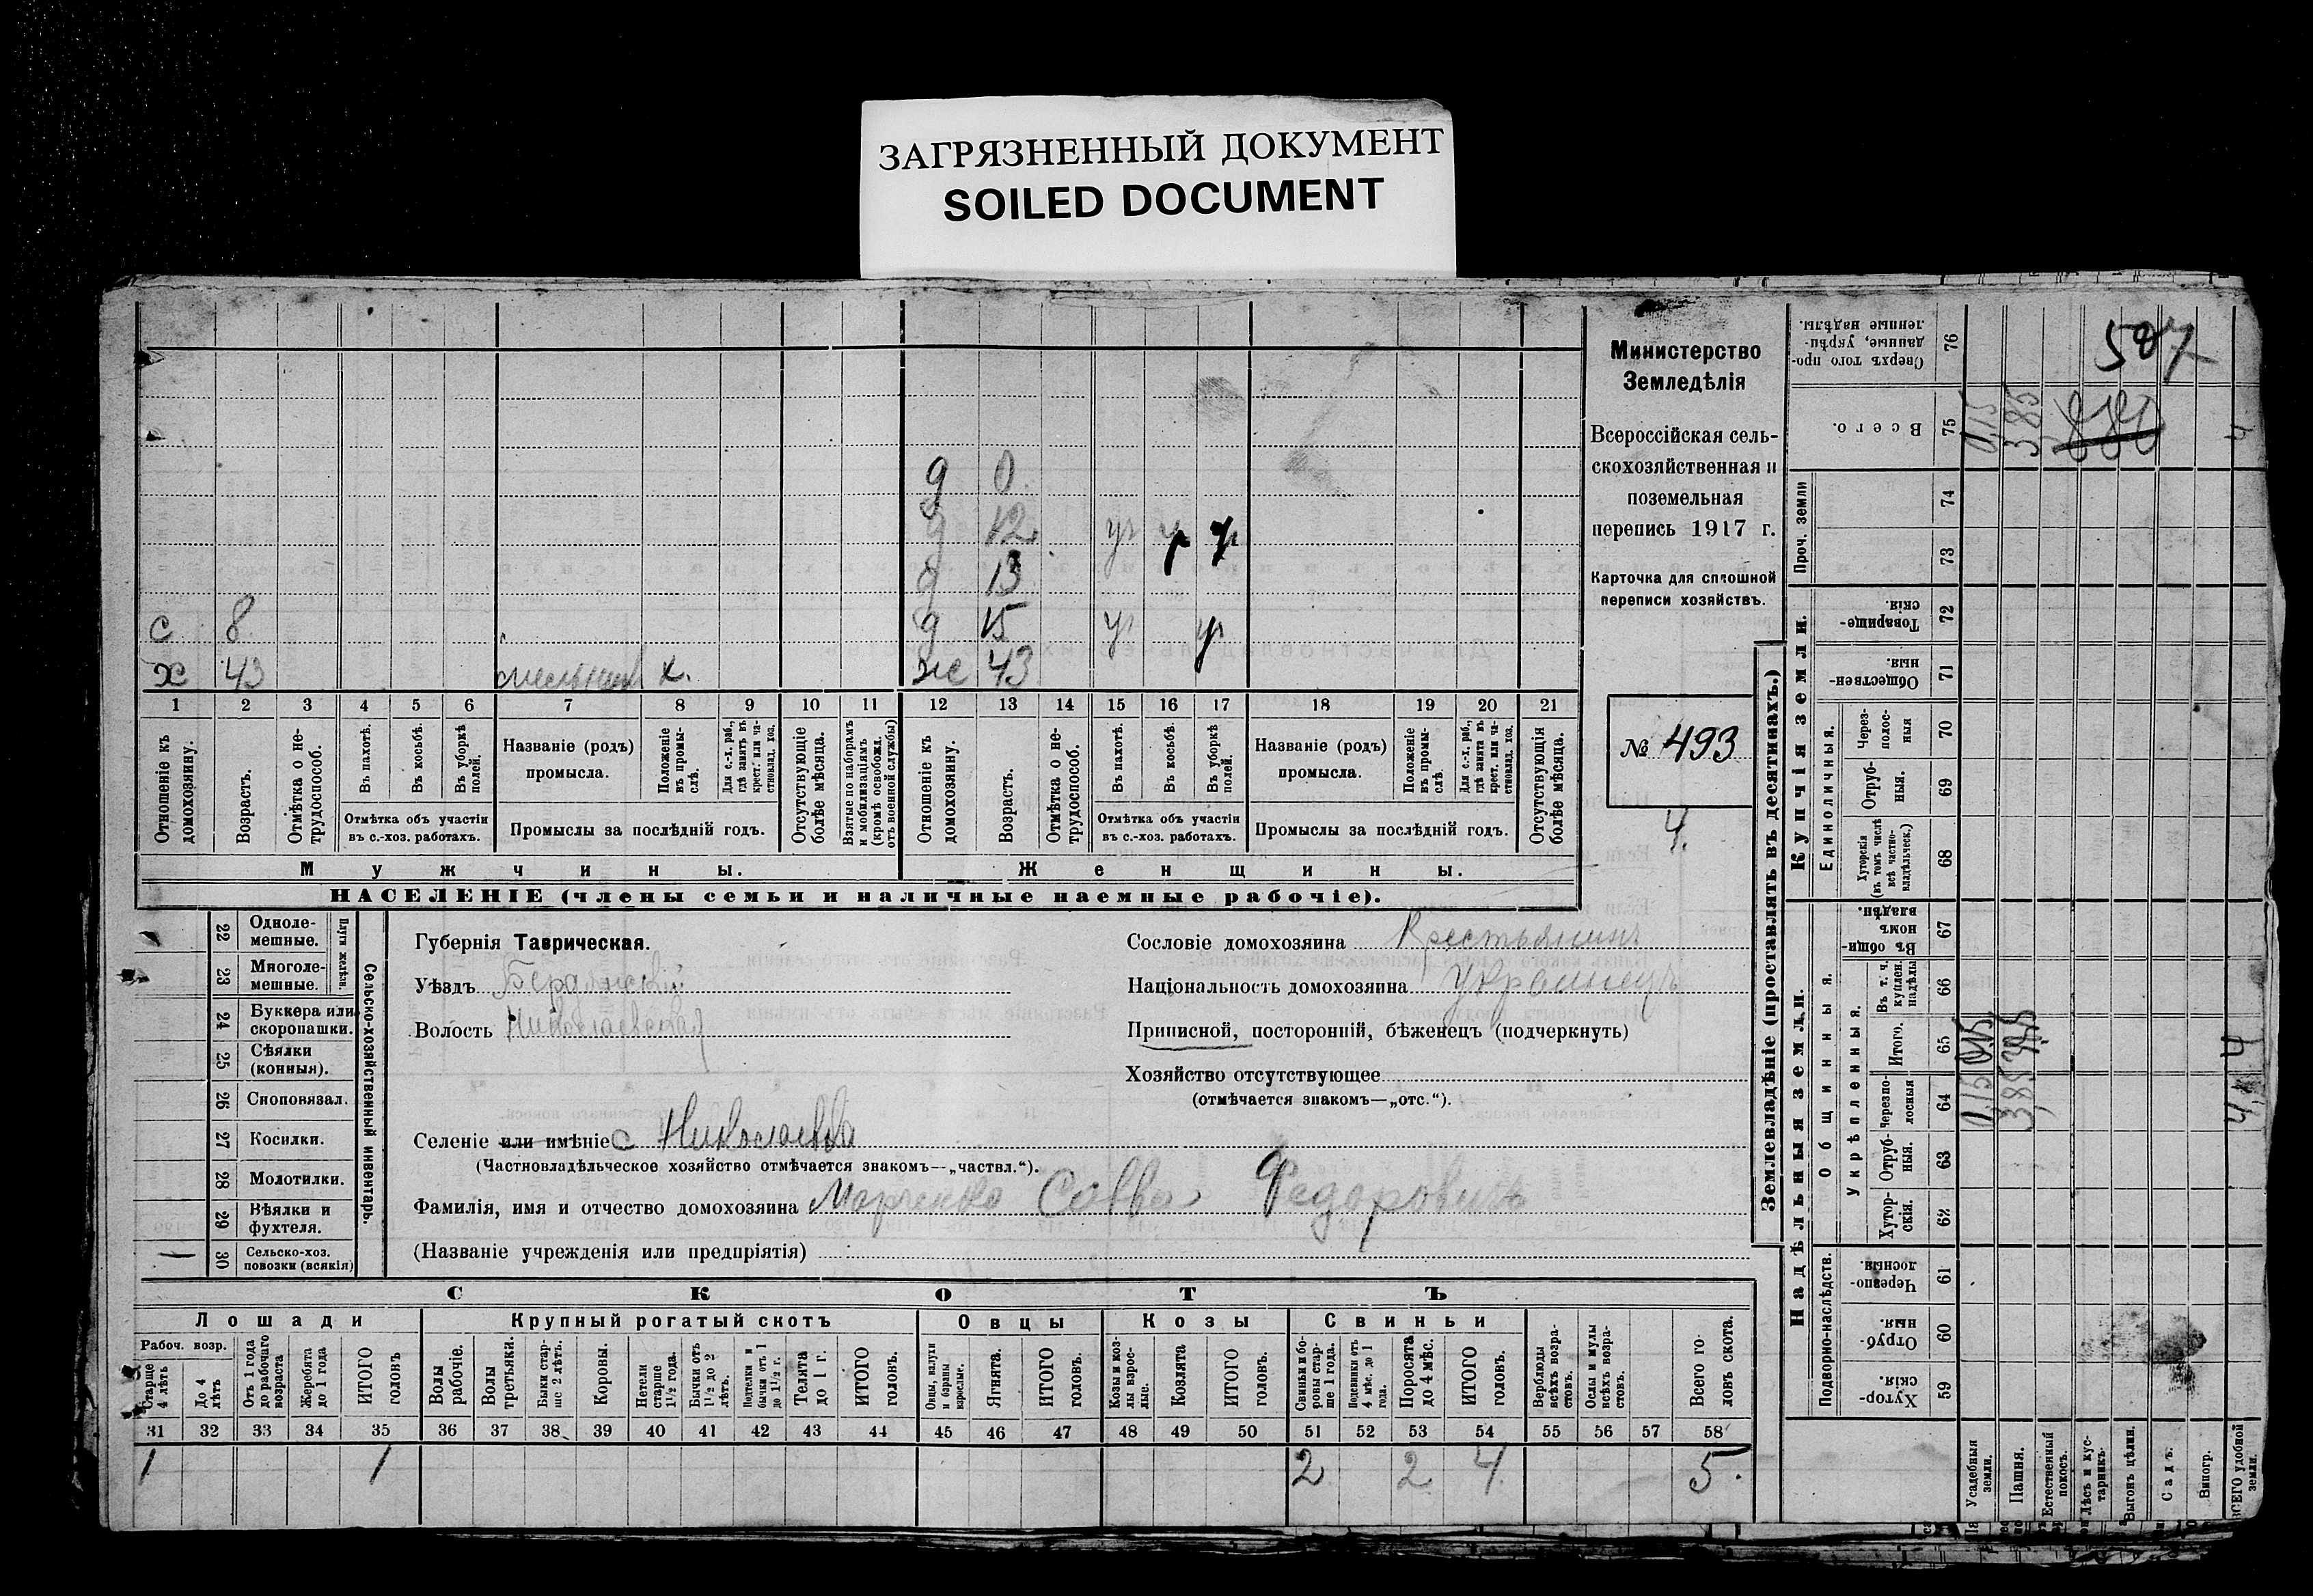 ЗАГРЯЗНЕННЫЙ ДОКУМЕНТ
SOILED DOCUMENT
д 0
д 12 ур ур ур
д 13
с 8 д 15 ур ур
х 43 мельник х. же 43
1 2 3 4 5 6 7 8 9 10 11 12 13 14 15 16 17 18 19 20 21
Отношеніе къ домохозяину.
Возрастъ.
Отмѣтка о не-трудоспособ.
Въ пахотѣ.
Въ косьбѣ.
Въ уборкѣ полей.
Отмѣтка объ участіи
въ с.-хоз. работахъ.
Названіе (родъ)
промысла.
Положеніе въ промы-слѣ.
Для с.-х. раб., гдѣ занятъ въ крест. или ча-стновлад. хоз.
Промыслы за послѣдній годъ.
Отсутствующіе болѣе мѣсяца.
Взятые по наборамъ и мобилизаціямъ (кромѣ освобожд. отъ военной службы)
Отношеніе къ домохозяину.
Возрастъ.
Отмѣтка о не-трудоспособ.
Въ пахотѣ.
Въ косьбѣ.
Въ уборкѣ полей.
Отмѣтка объ участіи
въ с.-хоз. работахъ.
Названіе (родъ)
промысла.
Положеніе въ промы-слѣ.
Для с.-х. раб., гдѣ занята въ крест. или ча-стновлад. хоз.
Промыслы за послѣдній годъ.
Отсутствующія болѣе мѣсяца.
Мужчины. Женщины.
НАСЕЛЕНІЕ (члены семьи и наличные наемные рабочіе).
Министерство
Земледѣлія
Всероссійская сель-
скохозяйственная и
поземельная
перепись 1917 г.
Карточка для сплошной
переписи хозяйствъ.
№ 493
4.
22 Одноле-мешные.
23 Многоле-мешные.
Плуги желѣзн.
24 Буккера или скоропашки.
25 Сѣялки (конныя).
26 Сноповязал.
27 Косилки.
28 Молотилки.
29 Вѣялки и фухтеля.
30 Сельско-хоз. повозки (всякія)
Сельско-хозяйственный инвентарь.
Губернія Таврическая.
Уѣздъ Бердянскій
Волость Николаевская
Селеніе или имѣніе с Николаевка
(Частновладѣльческое хозяйство отмѣчается знакомъ—„частвл.“).
Фамилія, имя и отчество домохозяина Марченко Савва Федоровичъ
(Названіе учрежденія или предпріятія)
Сословіе домохозяина Крестьянинъ
Національность домохозяина Украинецъ
Приписной, посторонній, бѣженецъ (подчеркнуть)
Хозяйство отсутствующее
(отмѣчается знакомъ—„отс.“).
СКОТЪ
Лошади Крупный рогатый скотъ Овцы Козы Свиньи
Рабоч. возр.
Старше 4 лѣтъ
До 4 лѣтъ
Отъ 1 года до рабочаго возраста
Жеребята до 1 года
ИТОГО головъ
Волы рабочіе.
Волы третьяки.
Быки стар-ше 2 лѣтъ.
Коровы.
Нетели старше 1½ года.
Бычки отъ 1½ до 2 лѣтъ.
Подтелки и бычки отъ 1 до 1½ г.
Телята до 1 г.
ИТОГО головъ.
Овцы, валухи и бараны взрослые.
Ягнята.
ИТОГО головъ.
Козы и коз-лы взрос-лые.
Козлята
ИТОГО головъ.
Свиньи и бо-ровы стар-ше 1 года.
Подсвинки отъ 4 мѣс. до 1 года.
Поросята до 4 мѣс.
ИТОГО головъ.
Верблюды всѣхъ возра-стовъ.
Ослы и мулы всѣхъ возра-стовъ.
Всего го-ловъ скота.
31 32 33 34 35 36 37 38 39 40 41 42 43 44 45 46 47 48 49 50 51 52 53 54 55 56 57 58
1 1 2 2 4 5.
Землевладѣніе (проставлять въ десятинахъ.)
Купчія земли.
Надѣльныя земли.
Сверхъ того про-данные, укрѣп-ленные надѣлы. 76
507
Всего. 75 0,15 3,85
Проч. земли 74 73
Товарище-скія. 72
Обществен-ныя. 71
Единоличныя.
Через-полос-ныя 70
Отруб-ныя. 69
Хуторскія (въ томъ числѣ всѣ частно-владѣльческ.) 68
Общинныя.
Въ общи-номъ владѣн. 67
Укрѣпленныя.
Въ т. ч. куплен. надѣлы 66
Итого. 65
Черезпо-лосныя 64 0,15 3,85 4
Отруб-ныя. 63
Хутор-скія. 62
Подворно-наслѣдств.
Черезпо-лосныя. 61
Отруб-ныя. 60
Хутор-скія. 59
Усадебныя земли.
Пашня.
Естественный покосъ.
Лѣсъ и кус-тарникъ.
Выгонъ цѣлин.
Садъ.
Виногр.
ВСЕГО удобной земли.